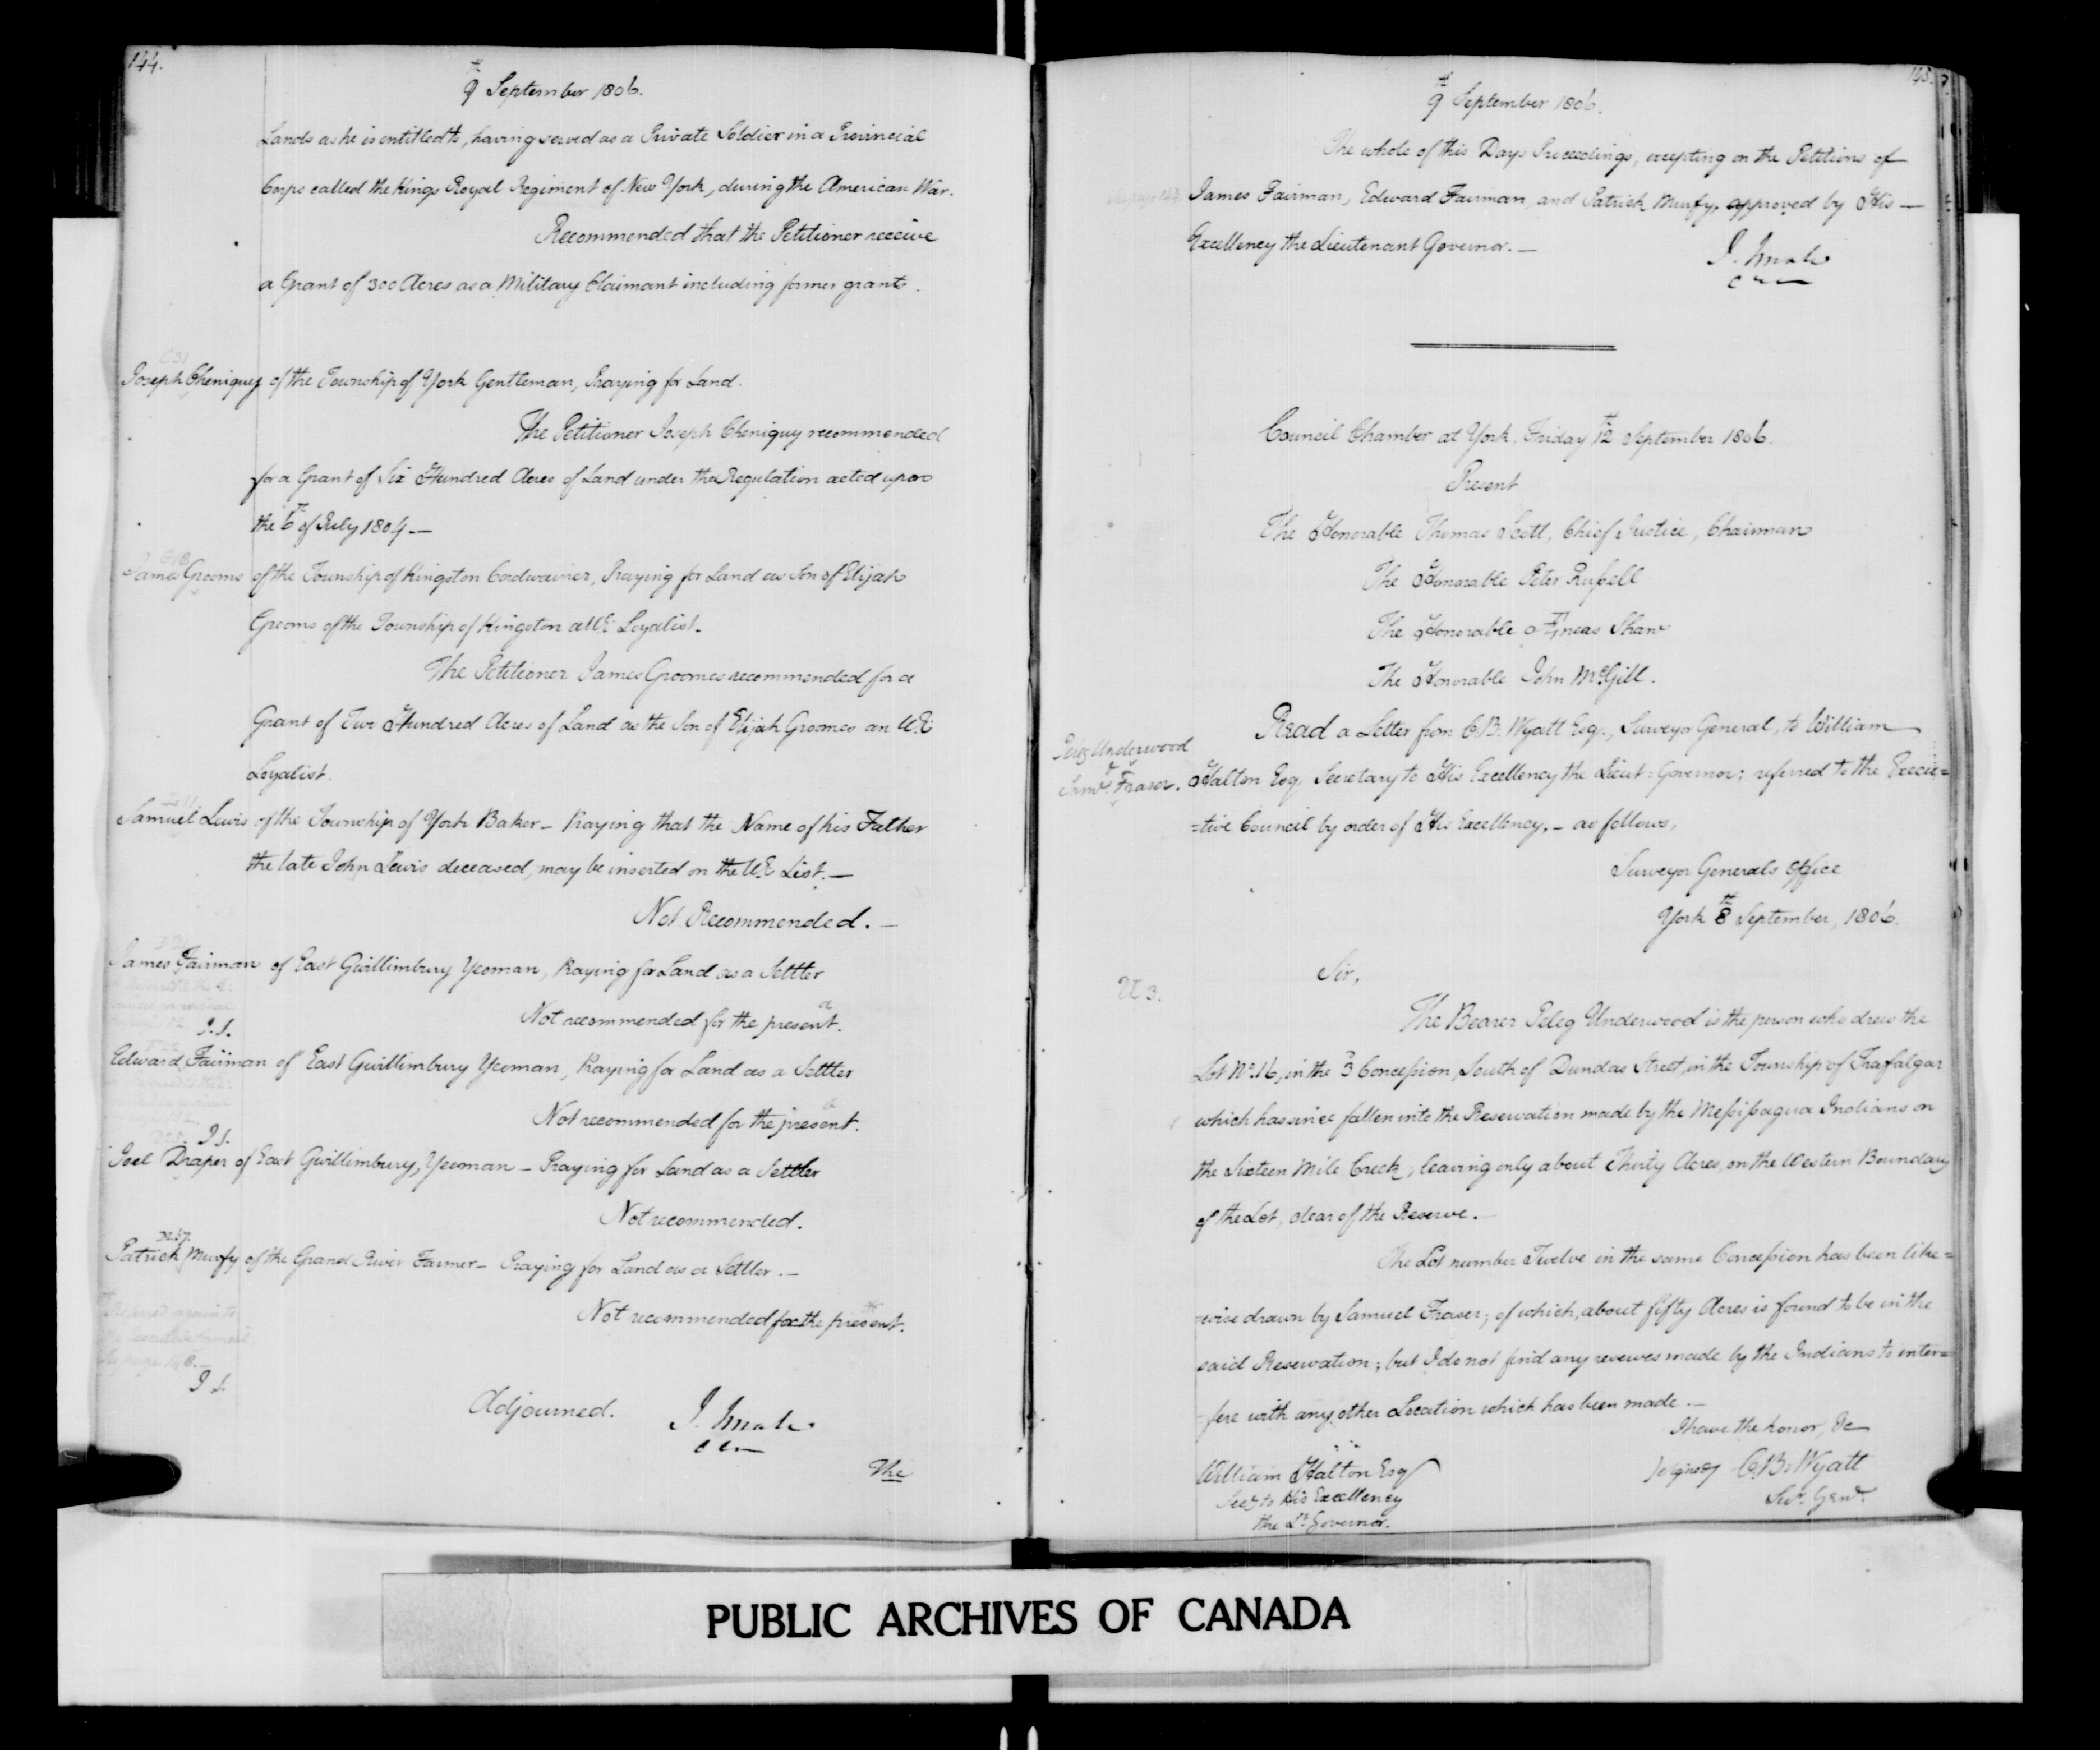 144.
9th September 1806.
Lands as he is entitled to, having served as a Private Soldier in a Provincial
Corps called the Kings Royal Regiment of New York, during the American War.
Recommended that the Petitioner receive
a Grant of 300 Acres as a Military Claimant including former grants.
Joseph Cheniquy of the Township of York Gentleman, Praying for Land.
The Petitioner Joseph Cheniquy recommended
for a Grant of Six Hundred Acres of Land under the Regulation acted upon
the 6th of July 1804 —
James Grooms of the Township of Kingston Cordwainer, Praying for Land as Son of Elijah
Grooms of the Township of Kingston a UE Loyalist.
The Petitioner James Groomes recommended for a
Grant of Two Hundred Acres of Land as the Son of Elijah Groomes an U.E
Loyalist.
Samuel Lewis of the Township of York Baker — Praying that the Name of his Father
the late John Lewis deceased, may be inserted on the U.E List. —
Not Recommended. —
James Fairman of East Gwillimbury Yeoman, Praying for Land as a Settler
Not recommended for the present.
Edward Fairman of East Gwillimbury Yeoman, Praying for Land as a Settler
Not recommended for the present.
Joel Draper of East Gwillimbury, Yeoman — Praying for Land as a Settler
Not recommended.
Patrick Murfy of the Grand River Farmer — Praying for Land as a Settler. —
Not recommended for the present.
Referred again to
the Executive Council
Adjourned.
The
145.
9th September 1806.
The whole of this Days Proceedings, excepting on the Petitions of
James Fairman, Edward Fairman, and Patrick Murfy, approved by His —
Excellency the Lieutenant Governor. —
Council Chamber at York, Friday 12th September 1806.
Present
The Honorable Thomas Scott, Chief Justice, Chairman
The Honorable Peter Russell
The Honorable Æneas Shaw
The Honorable John McGill.
Peleg Underwood
Saml. Fraser.
Read a Letter from C.B. Wyatt Esq., Surveyor General, to William
Halton Esq. Secretary to His Excellency the Lieut: Governor; referred to the Execu=
=tive Council by order of His Excellency, — as follows,
Surveyor Generals Office
York 8th September, 1806.
Sir,
U 3.
The Bearer Peleg Underwood is the person who drew the
Lot No. 16, in the 3d Concession, South of Dundas Street, in the Township of Trafalgar
which has since fallen into the Reservation made by the Messissagua Indians on
the Sixteen Mile Creek, leaving only about Thirty Acres, on the Western Boundary
of the Lot, clear of the Reserve. —
The Lot number Twelve in the same Concession has been like=
-wise drawn by Samuel Fraser; of which, about fifty Acres is found to be in the
said Reservation; but I do not find any reserves made by the Indians to inter=
-fere with any other Location which has been made. —
I have the honor, &c
(signed) C.B. Wyatt
Sur. Genl.
William Halton Esq
Secy to His Excellency
the Lt. Governor.
PUBLIC ARCHIVES OF CANADA